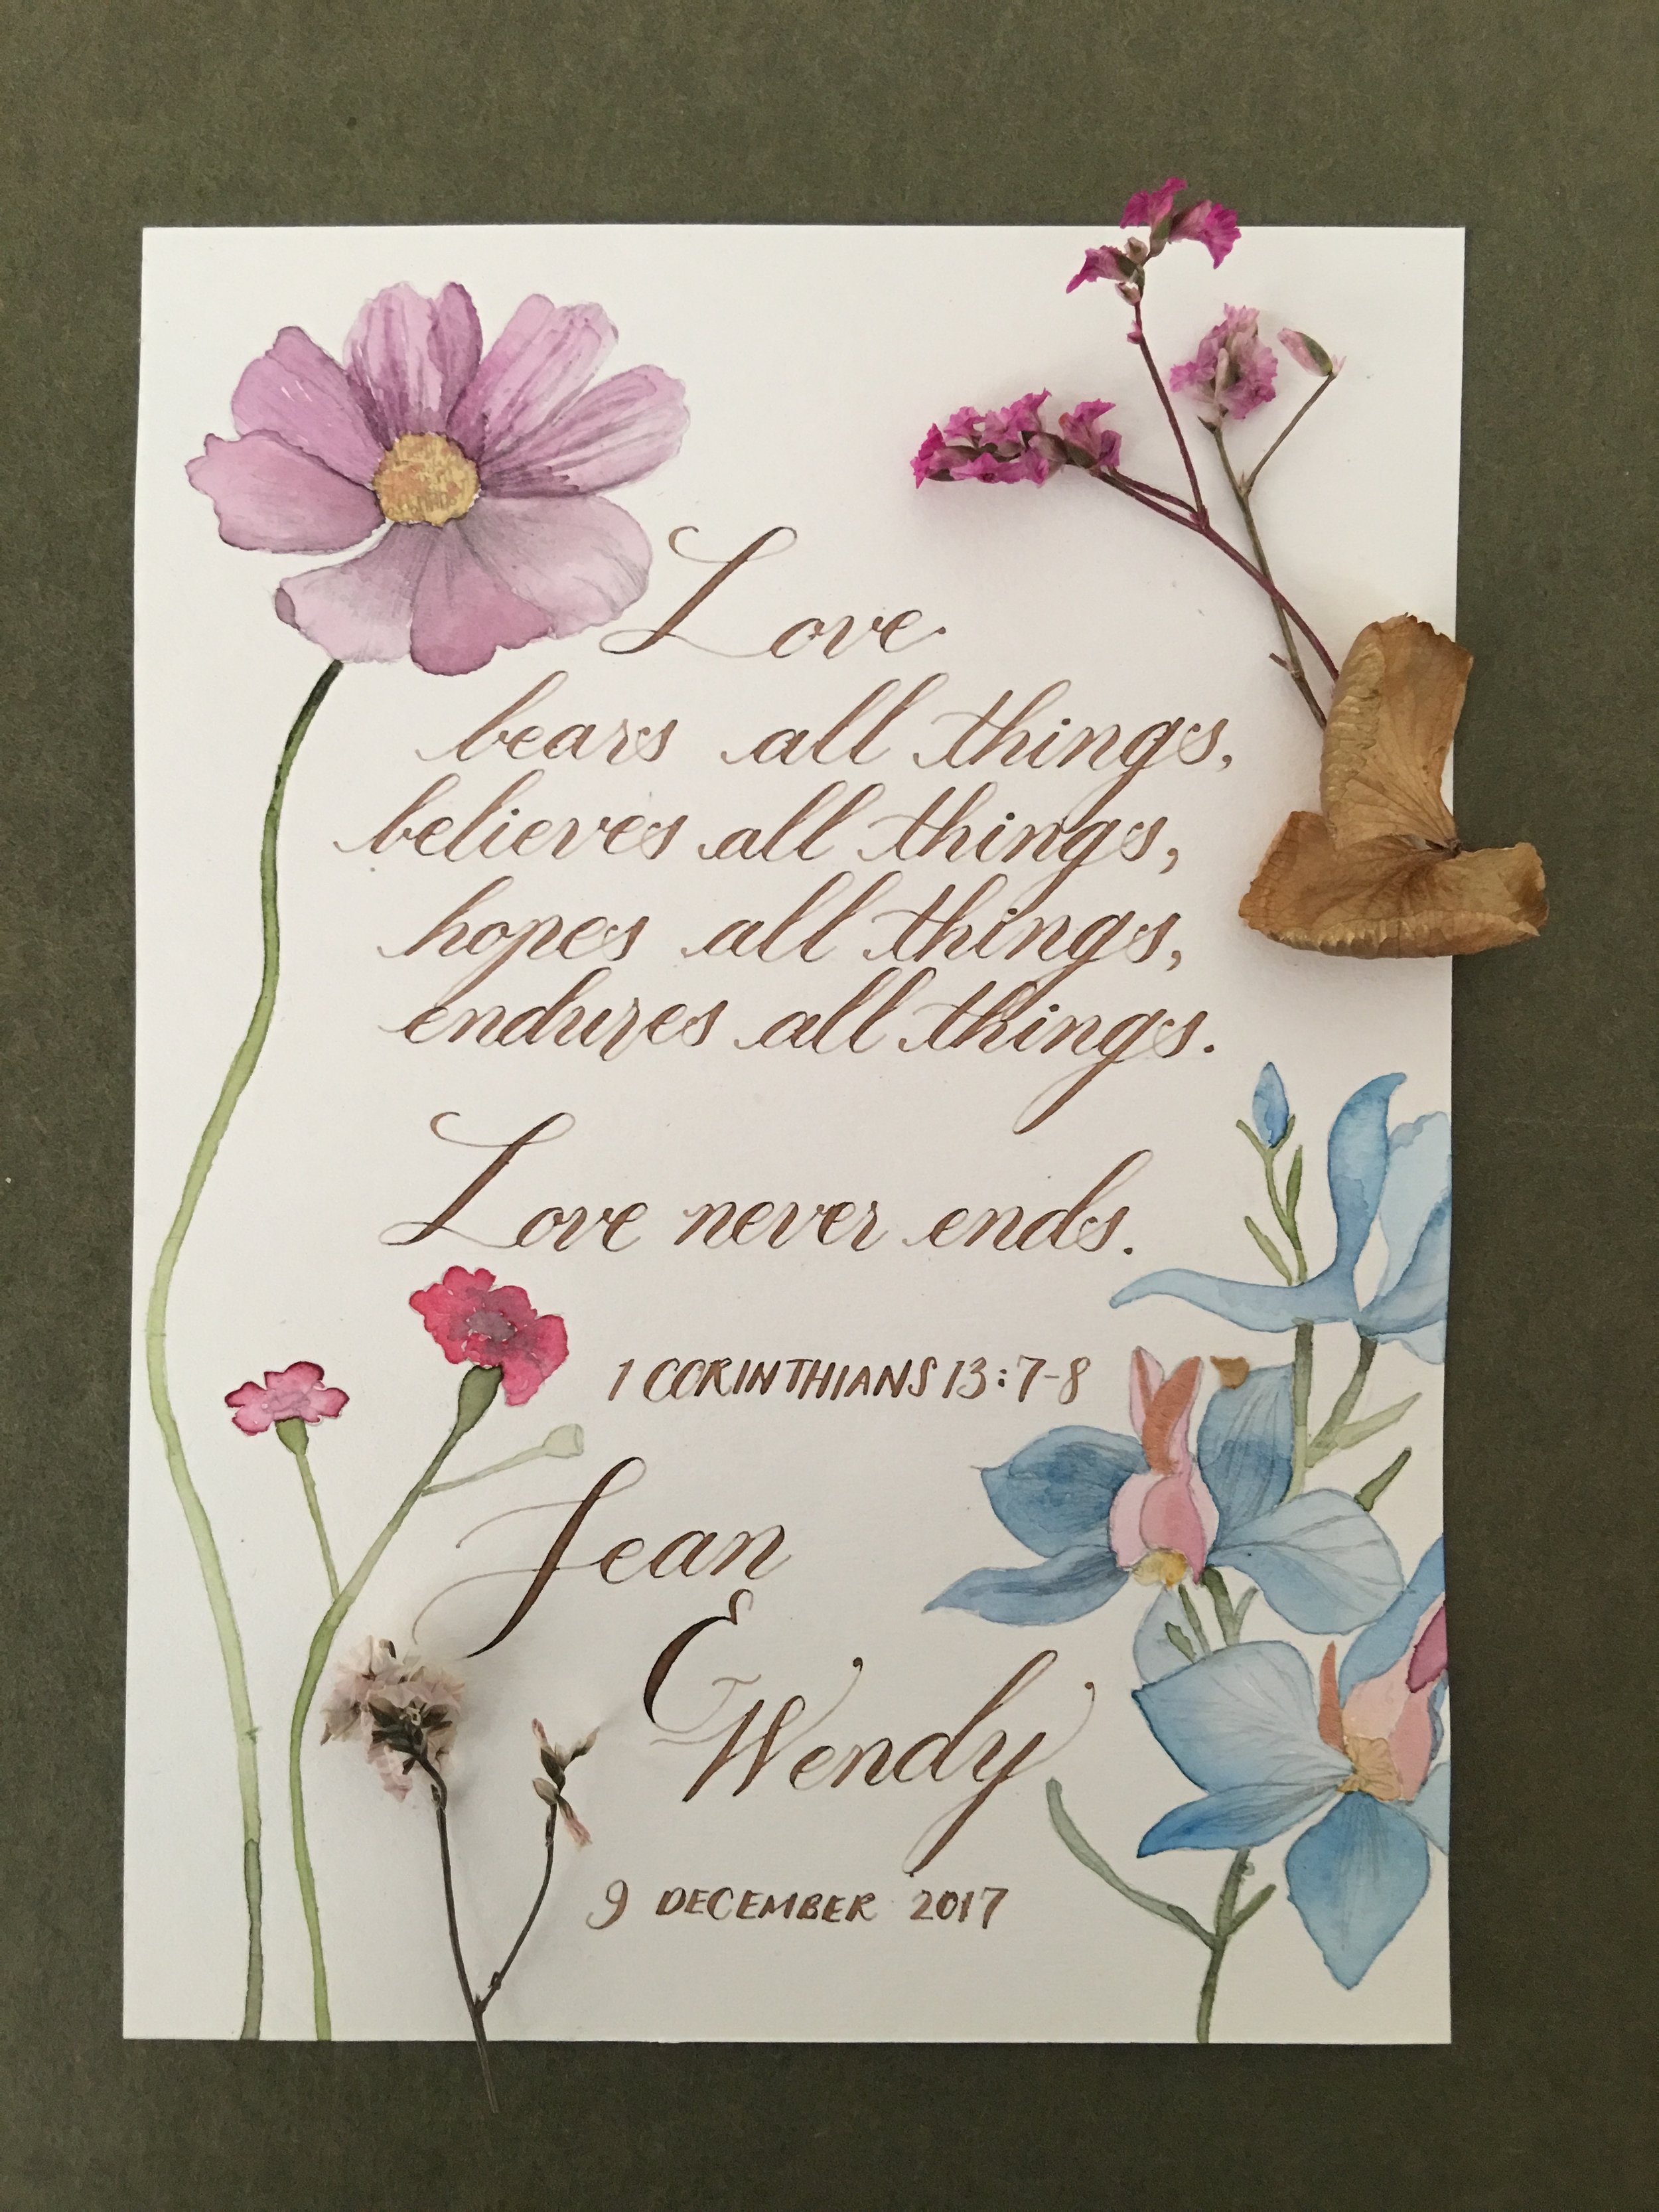 Love
bears all things,
believes all things,
hopes all things,
endures all things.
Love never ends.
1 CORINTHIANS 13:7-8
Jean
&
Wendy
9 DECEMBER 2017